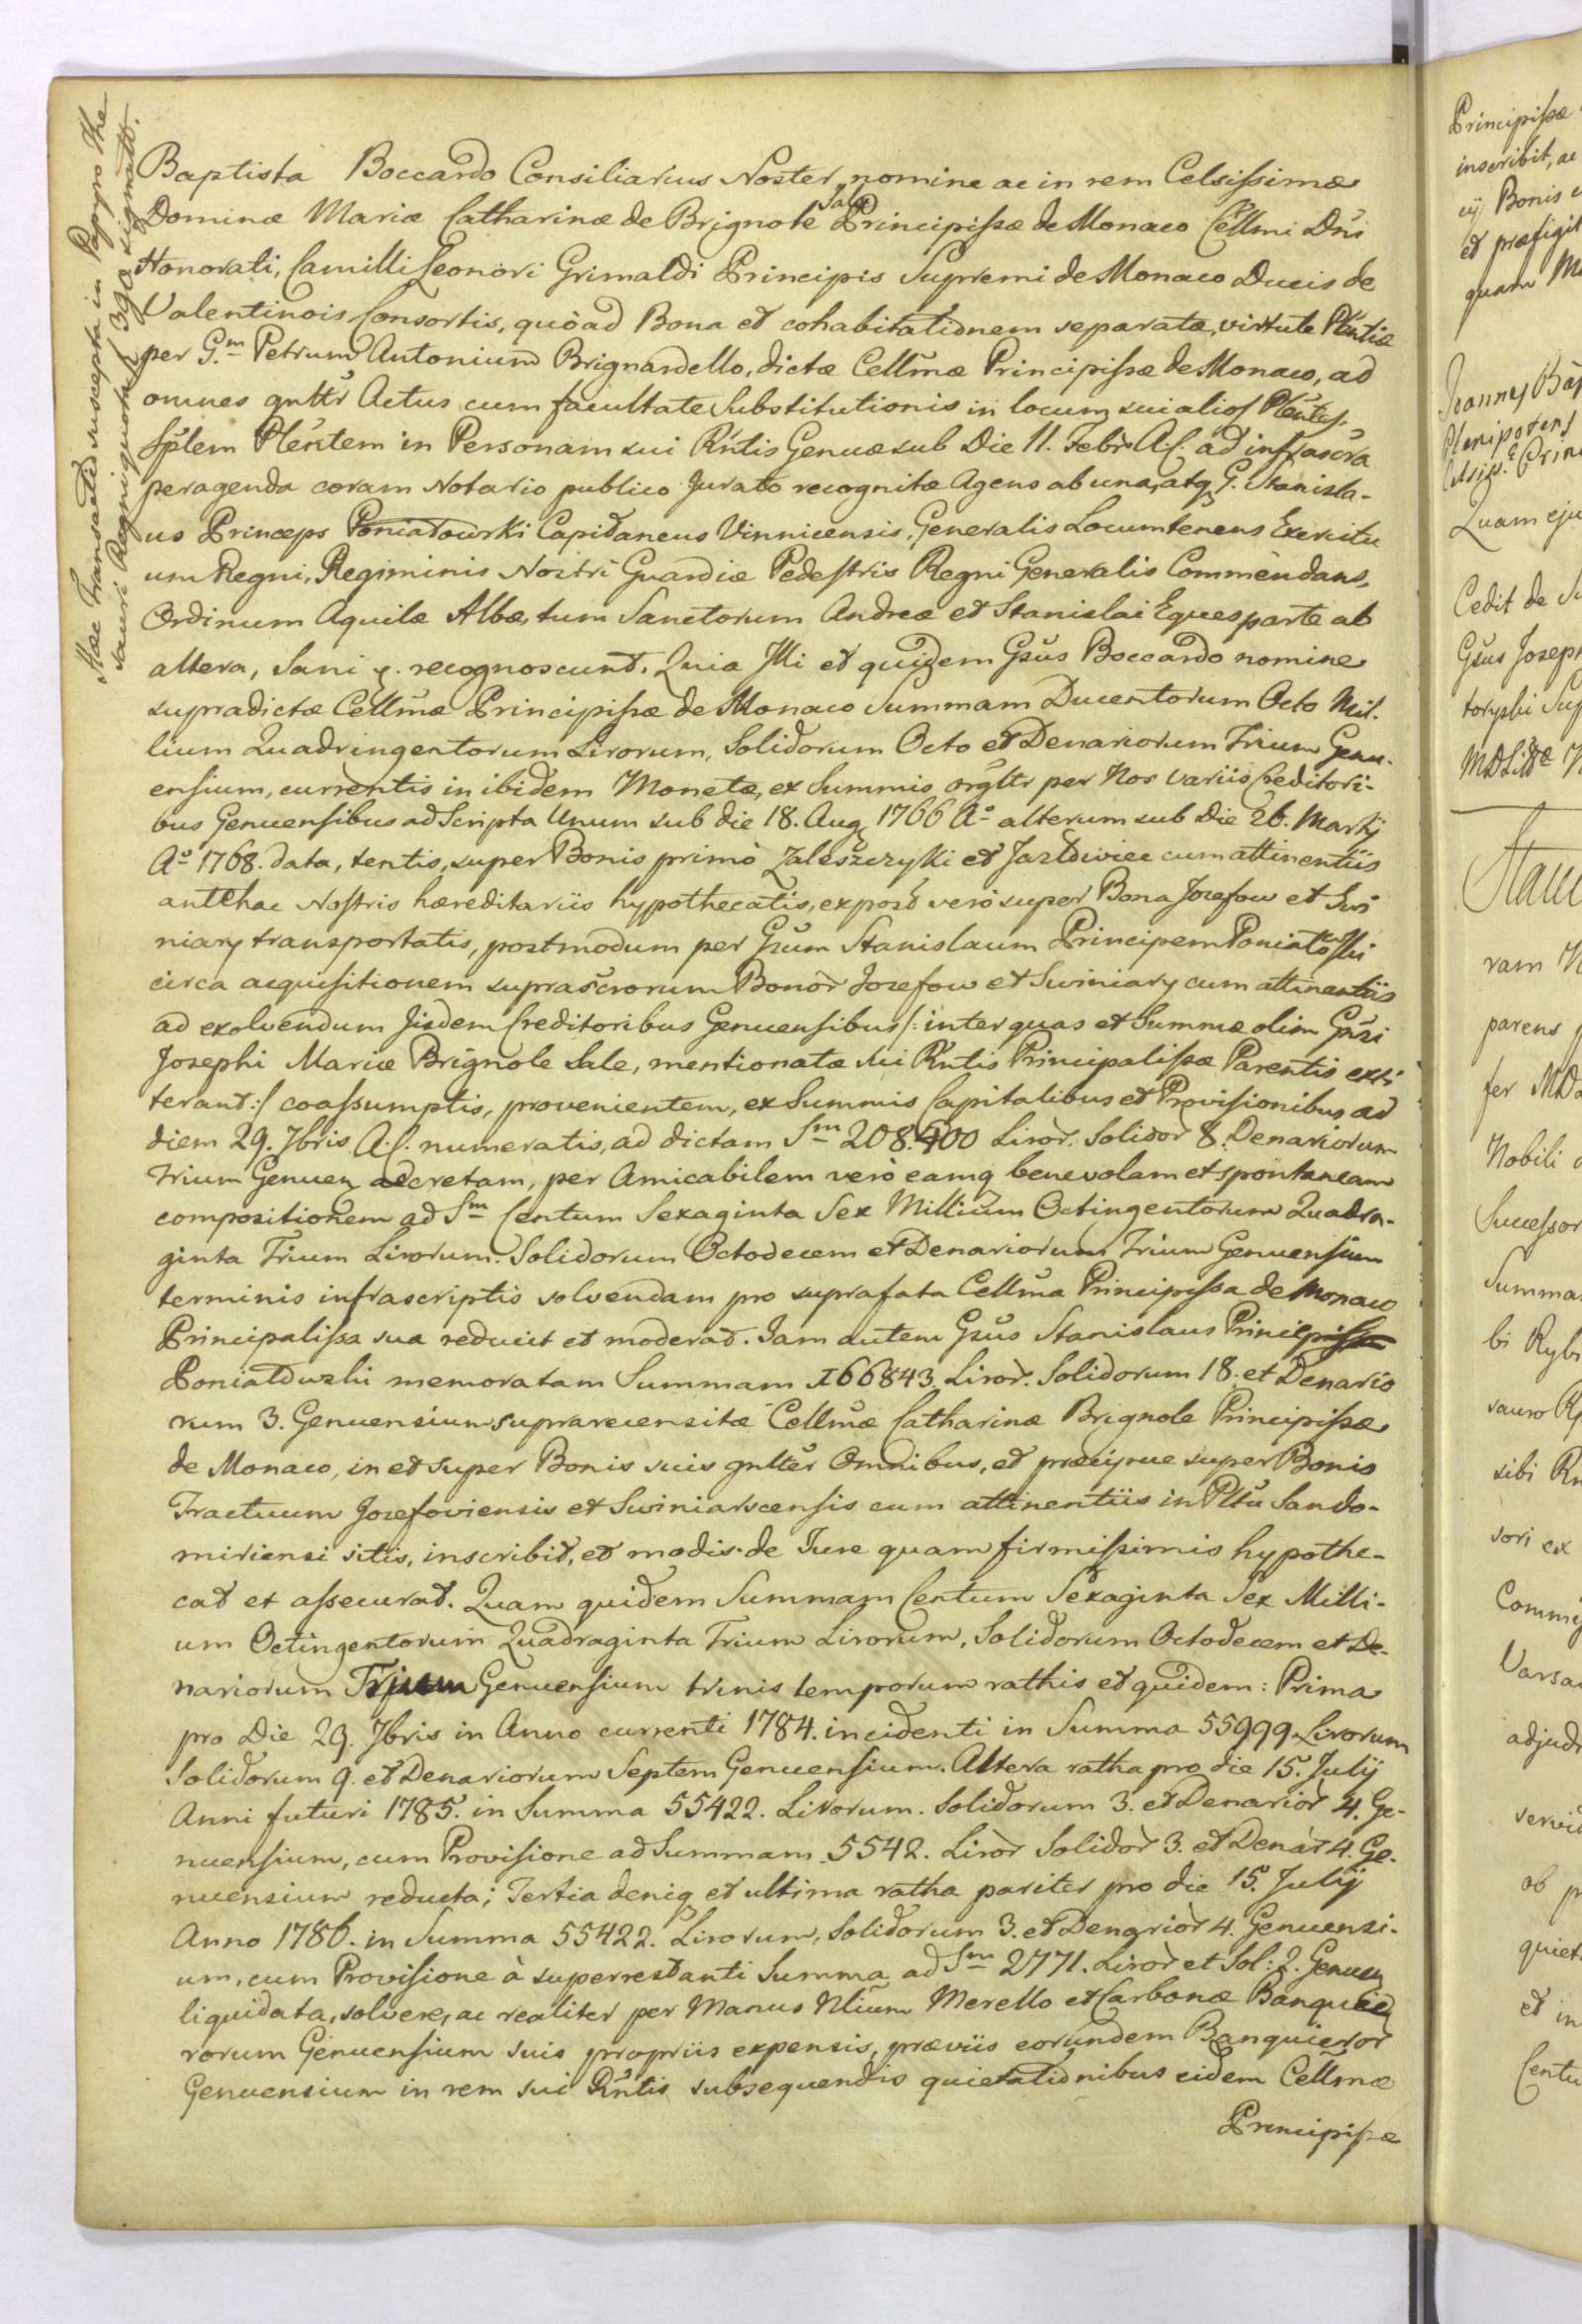 Hac Transactio suscepta in Papyro The
sauri Regni quota f 390 signato.
Baptista Boccardo Consiliarius Noster, nomine ac in rem Celsissimæ
Dominæ Mariæ Catharinæ de Brignole Sale Principissæ de Monaco Cellmi Dni
Honorati, Camilli Leonori Grimaldi Principis Supremi de Monaco Ducis de
Valentinois Consortis, quòad Bona et cohabitationem separatæ, virtute Pltntiæ
per G.m Petrum Antonium Brignardello, dictæ Cellmæ Principissæ de Monaco, ad
omnes gnltr Actus cum facultate Substitutionis in locum sui alios Plentes.
Splem Plentem in Personam sui Rntis Genuæ sub Die 11. Febr. A. C. ad infrascra
peragenda coram Notario publico Jurato recognitæ Agens ab una, atq G. Stanisla-
us Princeps Poniatowski Capitaneus Vinnicensis, Generalis Locumtenens Exercitu
um Regni, Regiminis Nostri Guardiæ Pedestris Regni Generalis Commèndans,
Ordinum Aquilæ Albæ, tum Sanctorum Andreæ et Stanislai Eques parte ab
altera, Sani &. recognoscunt. Quia Illi et quidem Gsus Boccardo nomine
supradictæ Cellmæ Principissæ de Monaco Summam Ducentorum Octo Mil-
lium Quadringentorum Lirorum, Solidorum Octo et Denariorum Trium Genu-
ensium, currentis in ibidem Monetæ, ex Summis orgltr per Nos variis Creditori-
bus Genuensibus ad Scripta Unum sub die 18. Aug 1766 Ao alterum sub Die 26. Martij
Ao 1768. data, tentis, super Bonis primò Zaleszczyki et Jazłowiec cum attinentiis
antehac Nostris hæreditariis hypothecatis, ex post verò super Bona Jozefow et Swi
niary transportatis, postmodum per Gsum Stanislaum Principem Poniatoski
circa acquisitionem suprascrorum Bonor Jozefow et Swiniary cum attinentiis
ad exolvendum Iisdem Creditoribus Genuensibus /: inter quas et Summæ olim Gsi
Josephi Mariæ Brignole Sale, mentionatæ sui Rntis Principalissæ Parentis exti
terant :/ coassumptis, provenientem, ex Summis Capitalibus et Provisionibus ad
diem 29. 7bris A. C. numeratis, ad dictam Sm 208.400 Liror. Solidor 8. Denariorum
Trium Genuen accretam, per Amicabilem verò eamq benevolam et spontaneam
compositionem ad Sm Centum Sexaginta Sex Millium Octingentorum Quadra-
ginta Trium Lirorum. Solidorum Octodecem et Denariorum Trium Genuensium
terminis infrascriptis solvendam pro suprafata Cellma Principissa de Monaco
Principalissa sua reducit et moderat. Jam autem Gsus Stanislaus Princeps
Poniatowski memoratam Summam 166843 Liror. Solidorum 18. et Denario
rum 3. Genuensium suprarecensitæ Cellmæ Catharinæ Brignole Principissæ
de Monaco, in et super Bonis suis gnlter Omnibus, et præcipue super Bonis
Tractuum Jozefoviensis et Swiniarscensis cum attinentiis in Pltu Sando-
miriensi sitis, inscribit, et modis de Jure quam firmissimis hypothe-
cat et assecurat. Quam quidem Summam Centum Sexaginta Sex Milli-
um Octingentorum Quadraginta Trium Lirorum, Solidorum Octodecem et De-
nariorum Trium Genuensium trinis temporum rathis et quidem: Prima
pro Die 29. 7bris in Anno currenti 1784. incidenti in Summa 55999 Lirorum
Solidorum 9. et Denariorum Septem Genuensium. Altera ratha pro die 15. Julij
Anni futuri 1785. in Summa 55422. Lirorum. Solidorum 3. et Denarior 4. Ge-
nuensium, cum Provisione ad Summam 5542. Liror Solidor 3. et Denar 4. Ge-
nuensium reducta; Tertia deniq et ultima ratha pariter pro die 15. Julij
Anno 1786. in Summa 55422. Lirorum, Solidorum 3. et Denarior 4. Genuensi-
um, cum Provisione à superrestanti Summa ad Sm 2771. Liror et Sol: 2. Genuen
liquidata, solvere, ac realiter per Manus Nlium Merello et Carbonæ Banquie
rorum Genuensium suis propriis expensis, præviis eorundem Banquieror
Genuensium in rem sui Rntis subsequendis quietationibus eidem Cellmæ
Principissæ
Principissæ
inscribit, ac
Bonis
et præfigit
quam
Plenipotens
Quam eju
Cedit de
Gsus Joseph
ram
parens
fer
Nobili
Successor
Summa
bi Ryb
sauro
sibi
sori ex
Varsa
adjud
ob
quiet
et in
Centu